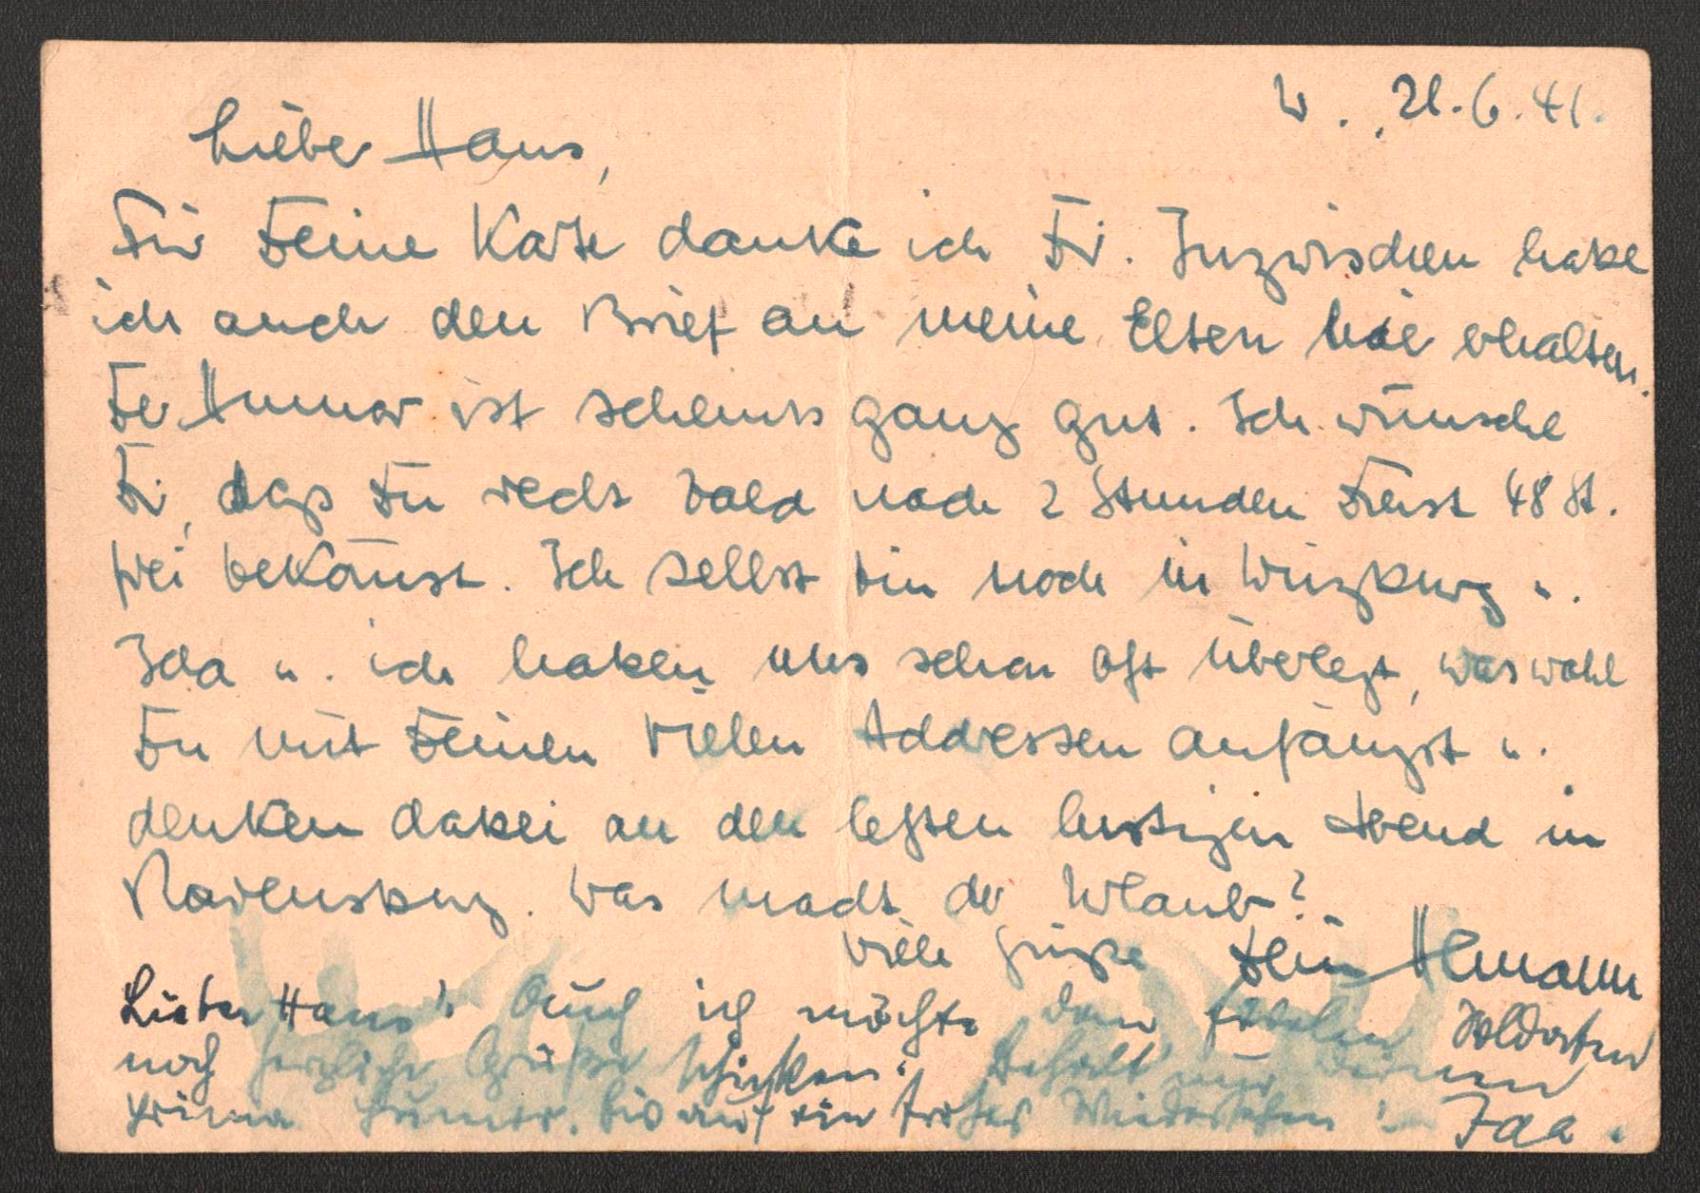 W., 21.6.41.
Lieber Hans,
Für Deine Karte danke ich Dir. Inzwischen habe
ich auch den Brief an meine Eltern hier erhalten.
Der Humor ist scheints ganz gut. Ich wünsche
Dir, dass Du recht bald nach 2 Stunden Dienst 48 St.
frei bekämst. Ich selbst bin noch in Würzburg u.
Ida u. ich haben uns schon oft überlegt, was wohl
Du mit Deinen vielen Addressen anfängst u.
denken dabei an den letzten lustigen Abend in
Ravensburg. Was macht der Urlaub?
Viele Grüße Dein Hermann
Lieber Hans! Auch ich möchte dem Soldaten
noch herzliche Grüße schicken. Behalt nur Deinen
prima Humor. Bis auf ein frohes Wiedersehen! Ida.